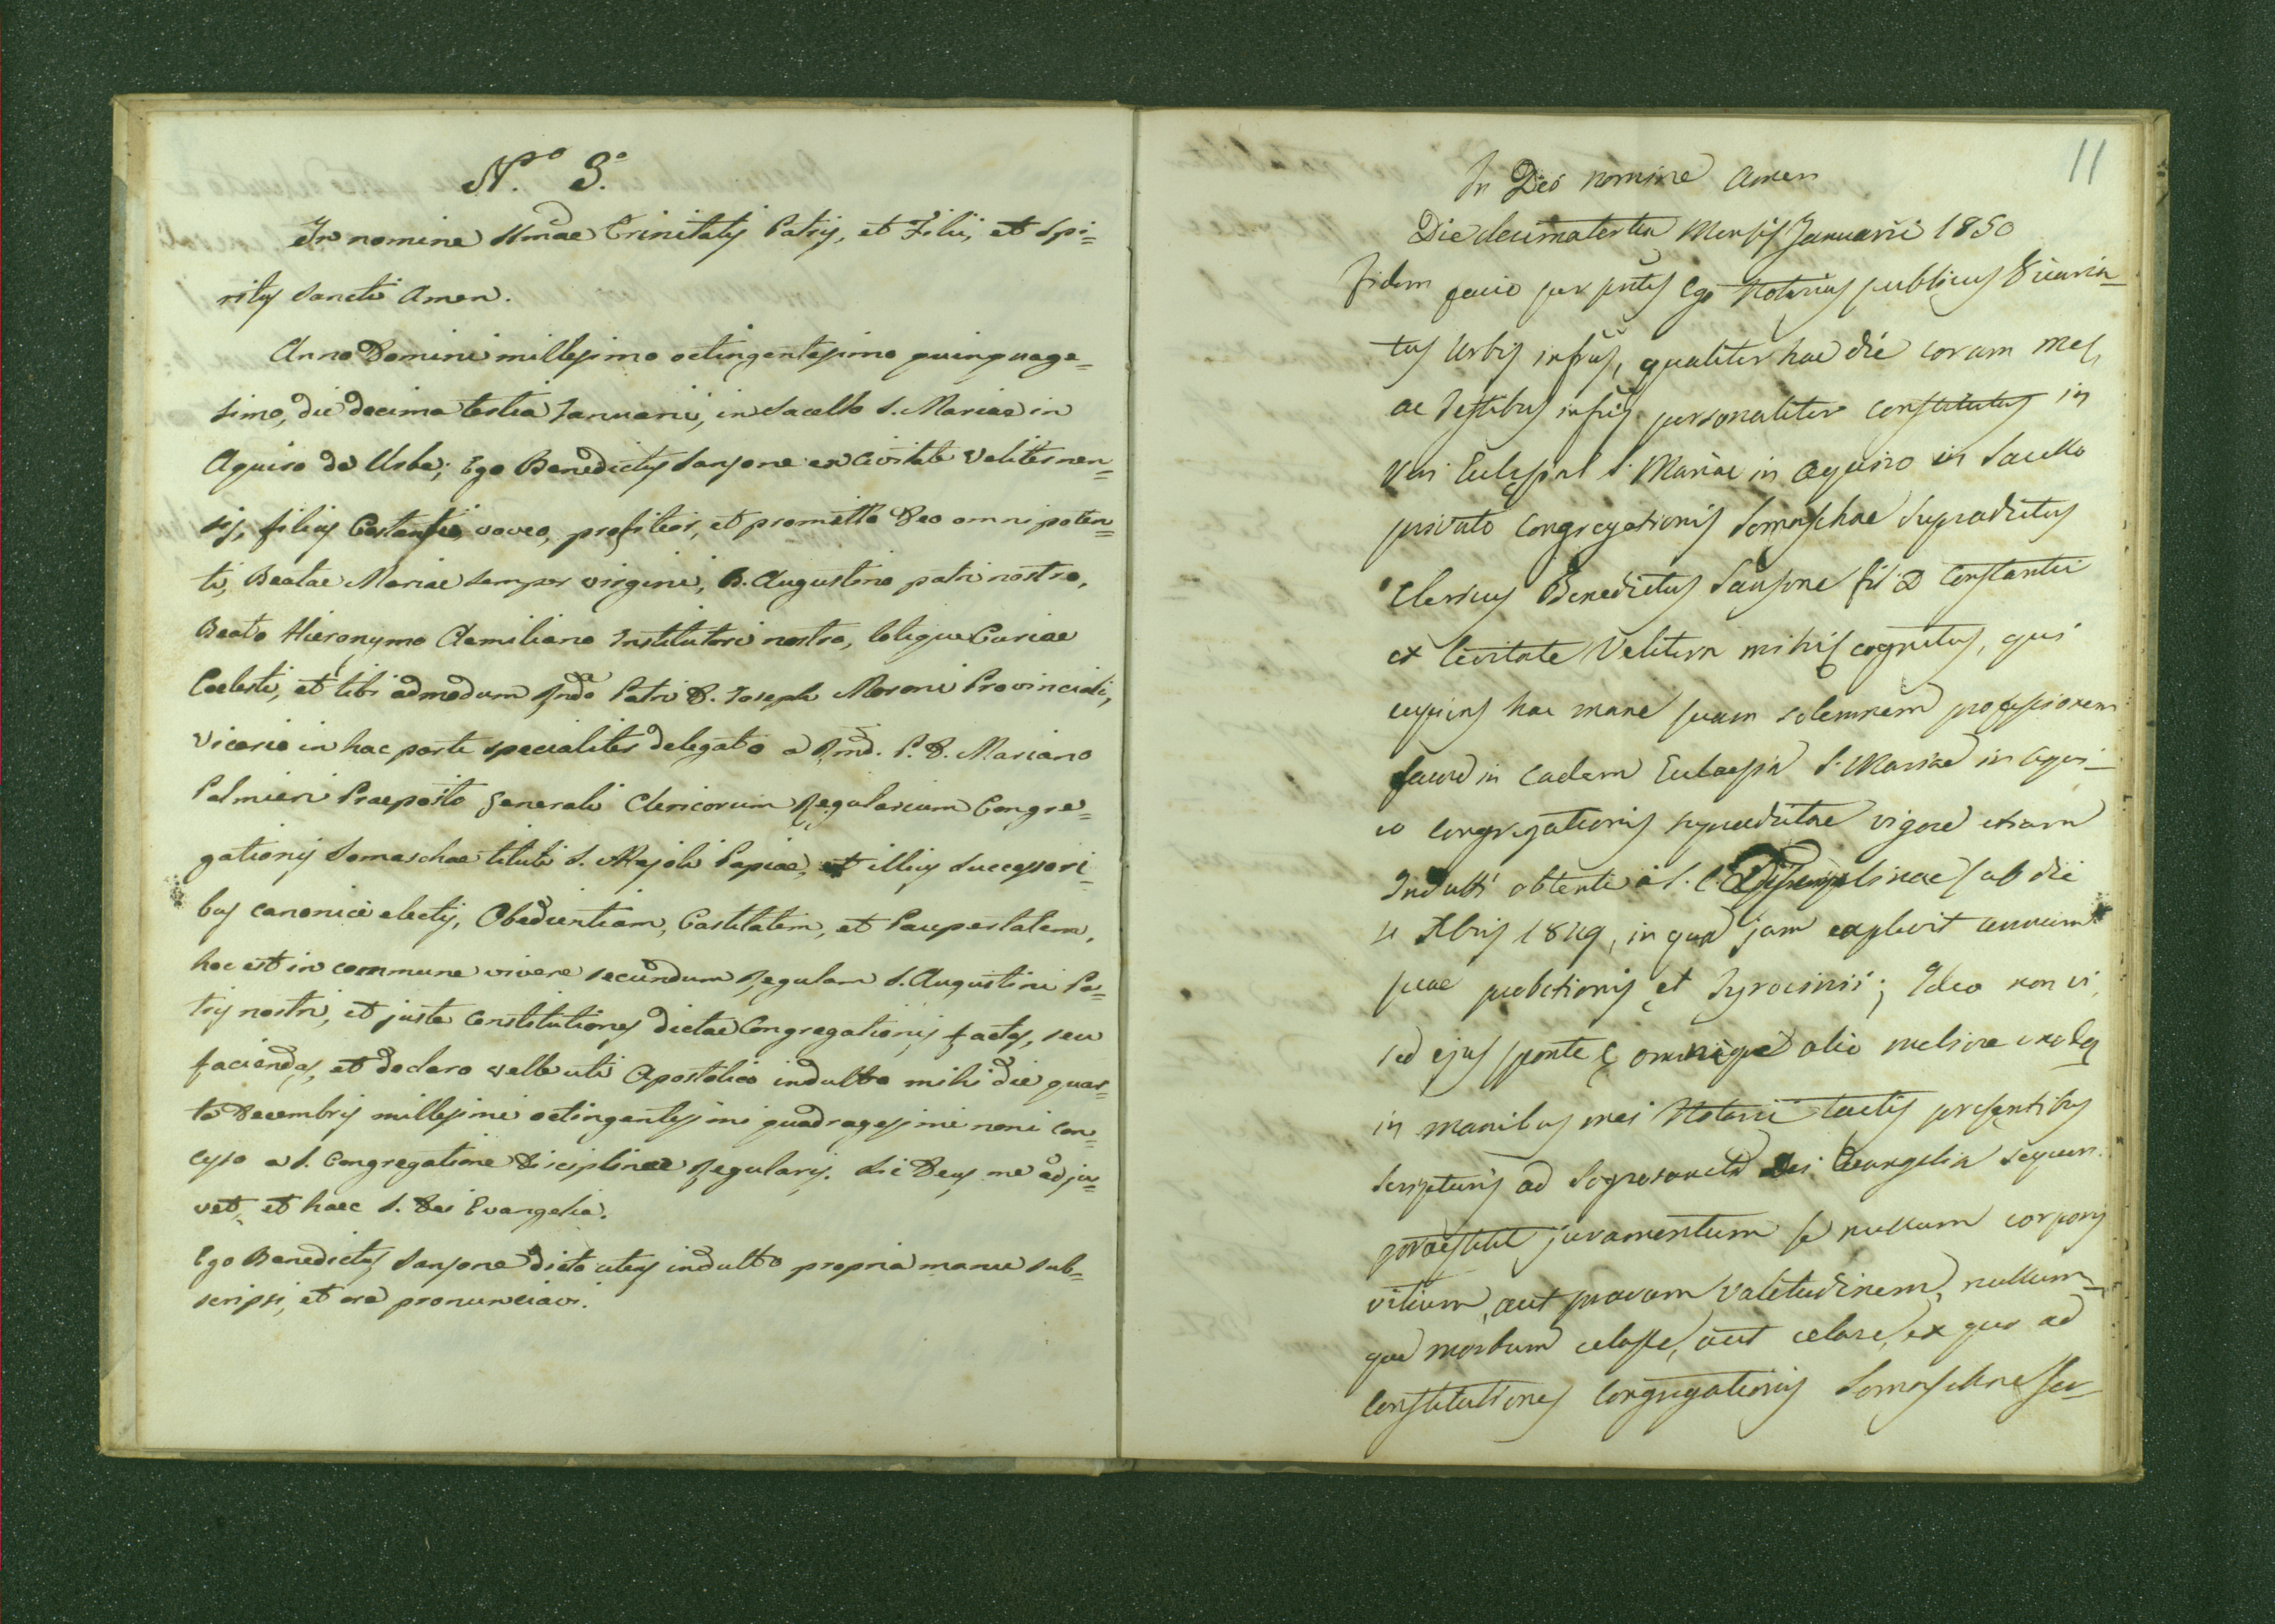 N.º 3.º
In nomine Smae Trinitatis Patris, et Filii, et Spi=
ritus Sancti Amen.
Anno Domini millesimo octingentesimo quinquage=
simo, die decima tertia Januarii, in Sacello S. Mariae in
Aquiro de Urbe; Ego Benedictus Sansone ex Civitate Veliternen=
sis, filius Costantii, voveo, profiteor, et promitto Deo omnipoten=
ti, Beatae Mariae semper virgini, B. Augustino patri nostro,
Beato Hieronymo Aemiliano Institutori nostro, totique Curiae
Coelesti, et tibi admodum Rndo Patri D. Joseph Moroni Provinciali,
Vicario in hac parte specialiter delegato a Rmd. P. D. Mariano
Palmieri Praeposito Generali Clericorum Regularium Congre=
gationis Somaschae tituli S. Majoli Papiae, et illius successori=
bus canonice electis, Obedientiam, Castitatem, et Paupertatem,
hoc est in commune vivere secundum Regulam S. Augustini Pa=
tris nostri, et juxta Constitutiones dictae Congregationis factas, seu
faciendas, et declaro velle uti Apostolico indulto mihi die quar=
ta Decembris millesimi octingentesimi quadragesimi noni con=
cesso a S. Congregatione Disciplinae Regularis. Sic Deus me adju=
vet, et haec S. Dei Evangelia.
Ego Benedictus Sansone dicto utens indulto propria manu sub=
scripsi, et ore pronunciavi.
11
In Dei nomine Amen
Die decimatertia Mensis Januarii 1850
Fidem facio per pntes Ego Notarius publicus Vicaria=
tus Urbis infrus, qualiter hac die coram me,
ac Testibus infris personaliter constitutus in
Ven Ecclesia S. Mariae in Aquiro in Sacello
privato Congregationis Somaschae Supradictus
Clericus Benedictus Sansone fil: D Constantii
ex Civitate Velitern mihi cognitus, qui
cupiens hac mane suam solemnem professionem
facere in eadem Ecclaesia S. Mariae in Aqui=
ro Congregationis supradictae vigore etiam
Indulti obtenti a S. C. Disciplinae sub die
4 Xbris 1849, in qua jam explevit annum
suae probationis et Tyrocinii; Ideo non vi,
sed ejus sponte omnique alio meliore modo
in manibus mei Notarii tactis presentibus
Scripturis ad Sagrosancta Dei Evangelia sequen.
praestitit juramentum se nullum corporis
vitium, aut pravam valetudinem, nullum=
que morbum celasse, aut celare, ex quo ad
Constitutiones Congregationis Somaschae ser=